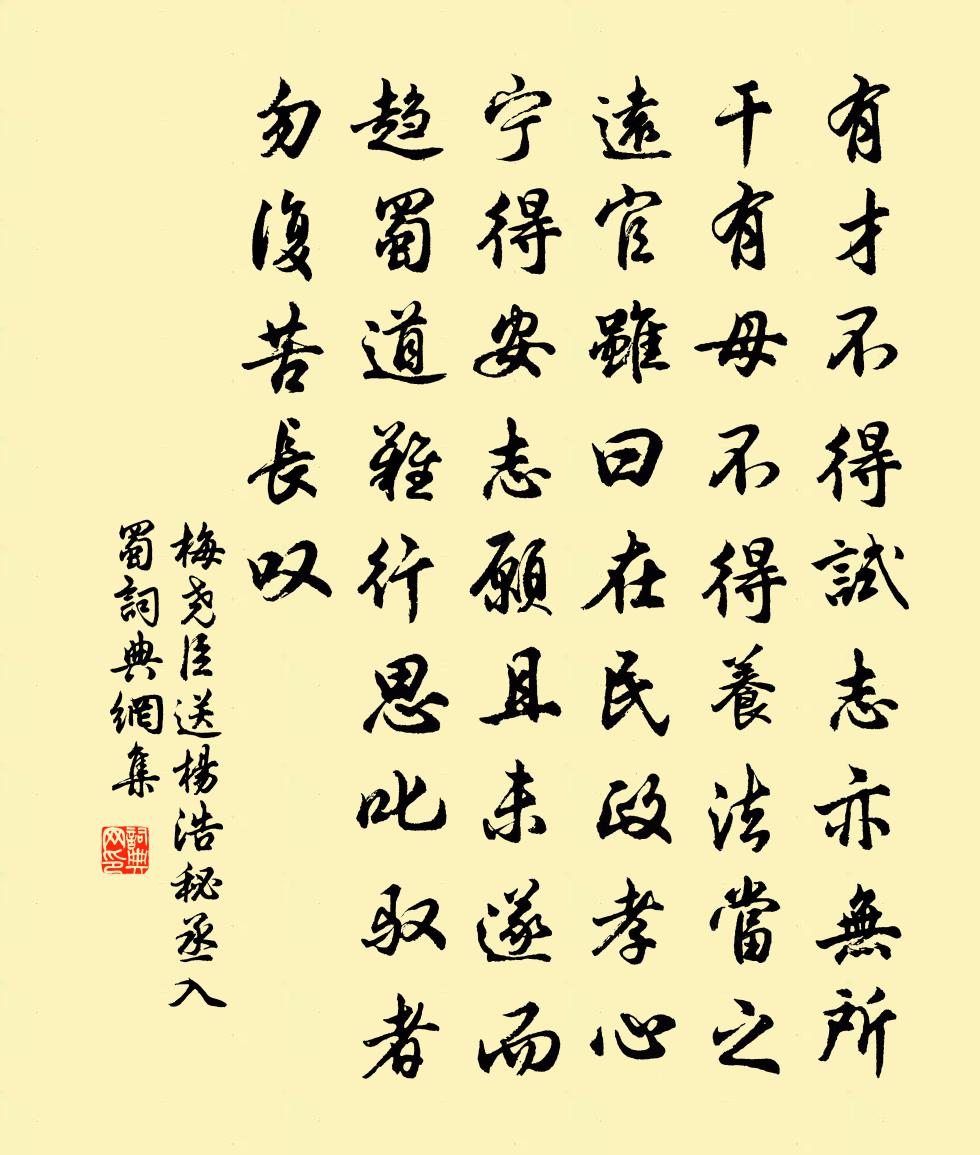 有才不得試志亦無所
干有母不得養法當之
遠官雖曰在民政孝心
宁得安志願且未遂而
趋蜀道難行思叱驭者
勿復苦長叹
梅尧臣送楊浩秘丞入
蜀詞典網集
詞典网印